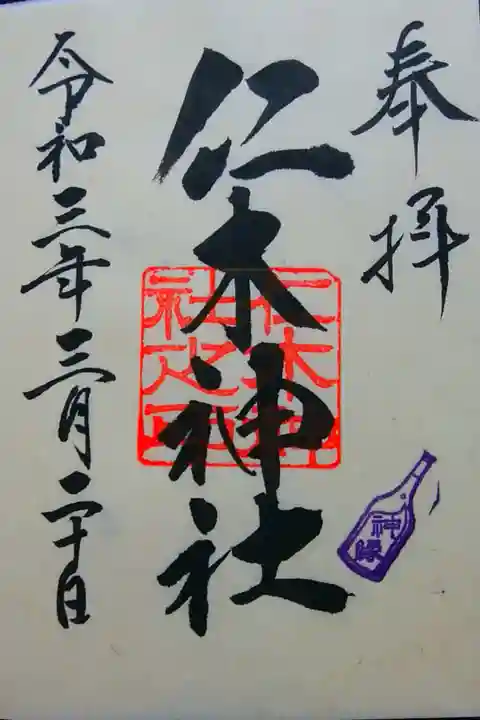 奉拝
仁木神社
仁木神
社之印
神縁
令和三年三月二十日